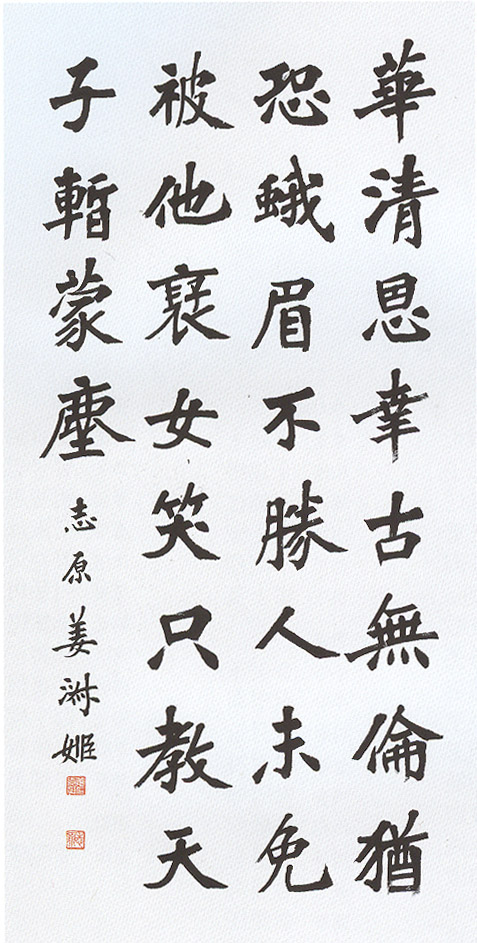 華清恩幸古無倫猶
恐蛾眉不勝人未免
被他褒女笑只教天
子暫蒙塵
志原姜淑姬